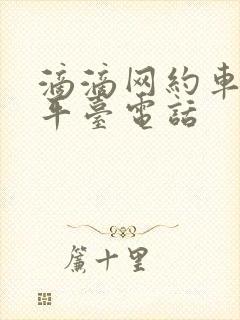 滴滴网約車
平臺電話
簾十里